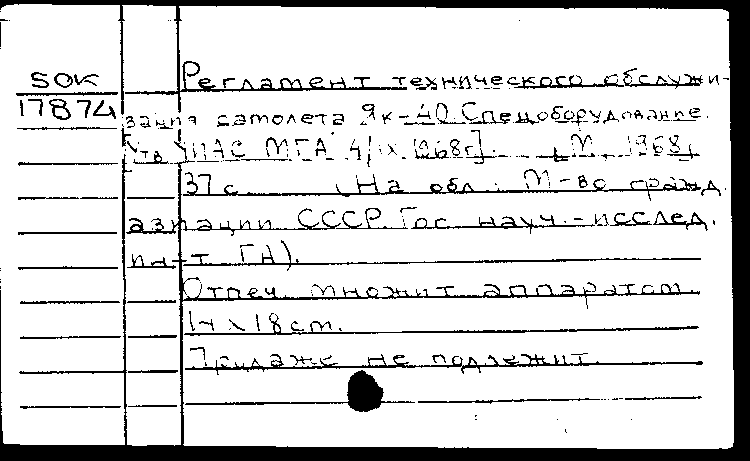 50K
17874
Регламент технического обслужи-
вания самолета Як-40. Спецоборудование.
[Утв УИАС МГА 4/IX 1968г]. М, 1968,
37 с (На обл.: М-во гражд.
авиации СССР. Гос науч.-исслед.
ин-т ГА).
Отпеч. множит аппаратом.
14 х 18 см.
Продаже не подлежит.